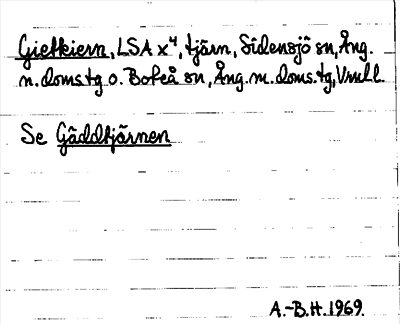 Gietkiern, LSA x⁴, tjärn, Sidensjö sn, Ång.
n. doms.tg o. Boteå sn, Ång. m. doms.tg, Vnll.
Se Gäddtjärnen
A.-B.H. 1969.